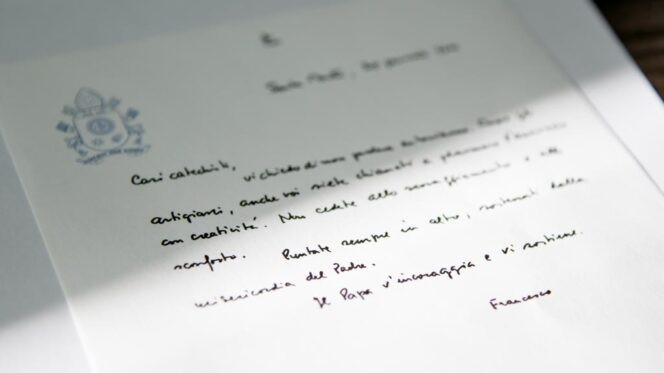 Santa Marta,
Cari catechisti,
vi chiedo di non perdere
artigiani, anche voi siete chiamati a plasmare l'annuncio
con creatività. Non cedete allo scoraggiamento e allo
sconforto. Puntate sempre in alto, sostenuti dalla
misericordia del Padre.
Il Papa v'incoraggia e vi sostiene.
Francesco